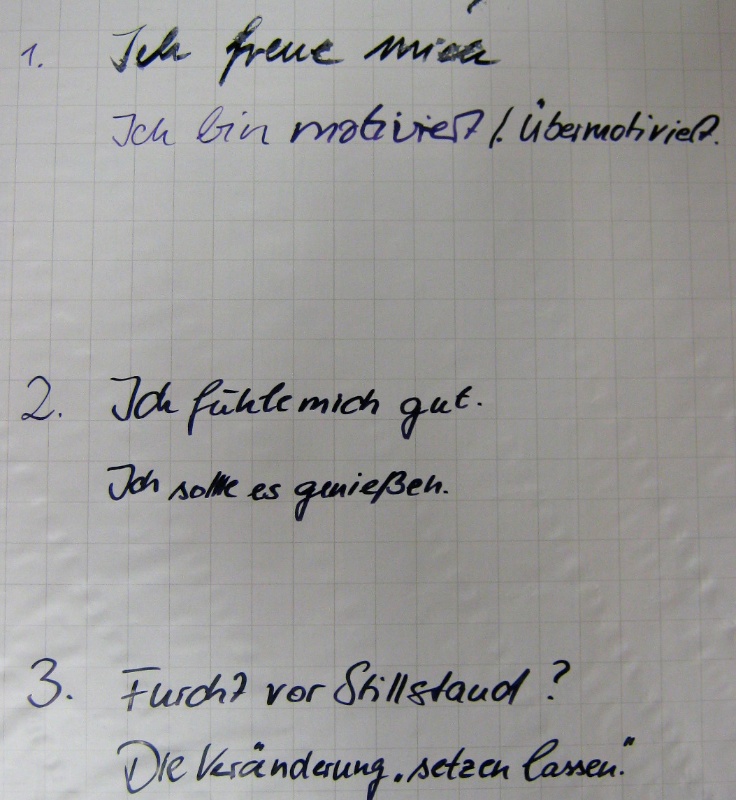 1. Ich freue mich
Ich bin motiviert /. Übermotiviert.
2. Ich fühle mich gut.
Ich sollte es genießen.
3. Furcht vor Stillstand?
Die Veränderung „setzen lassen."